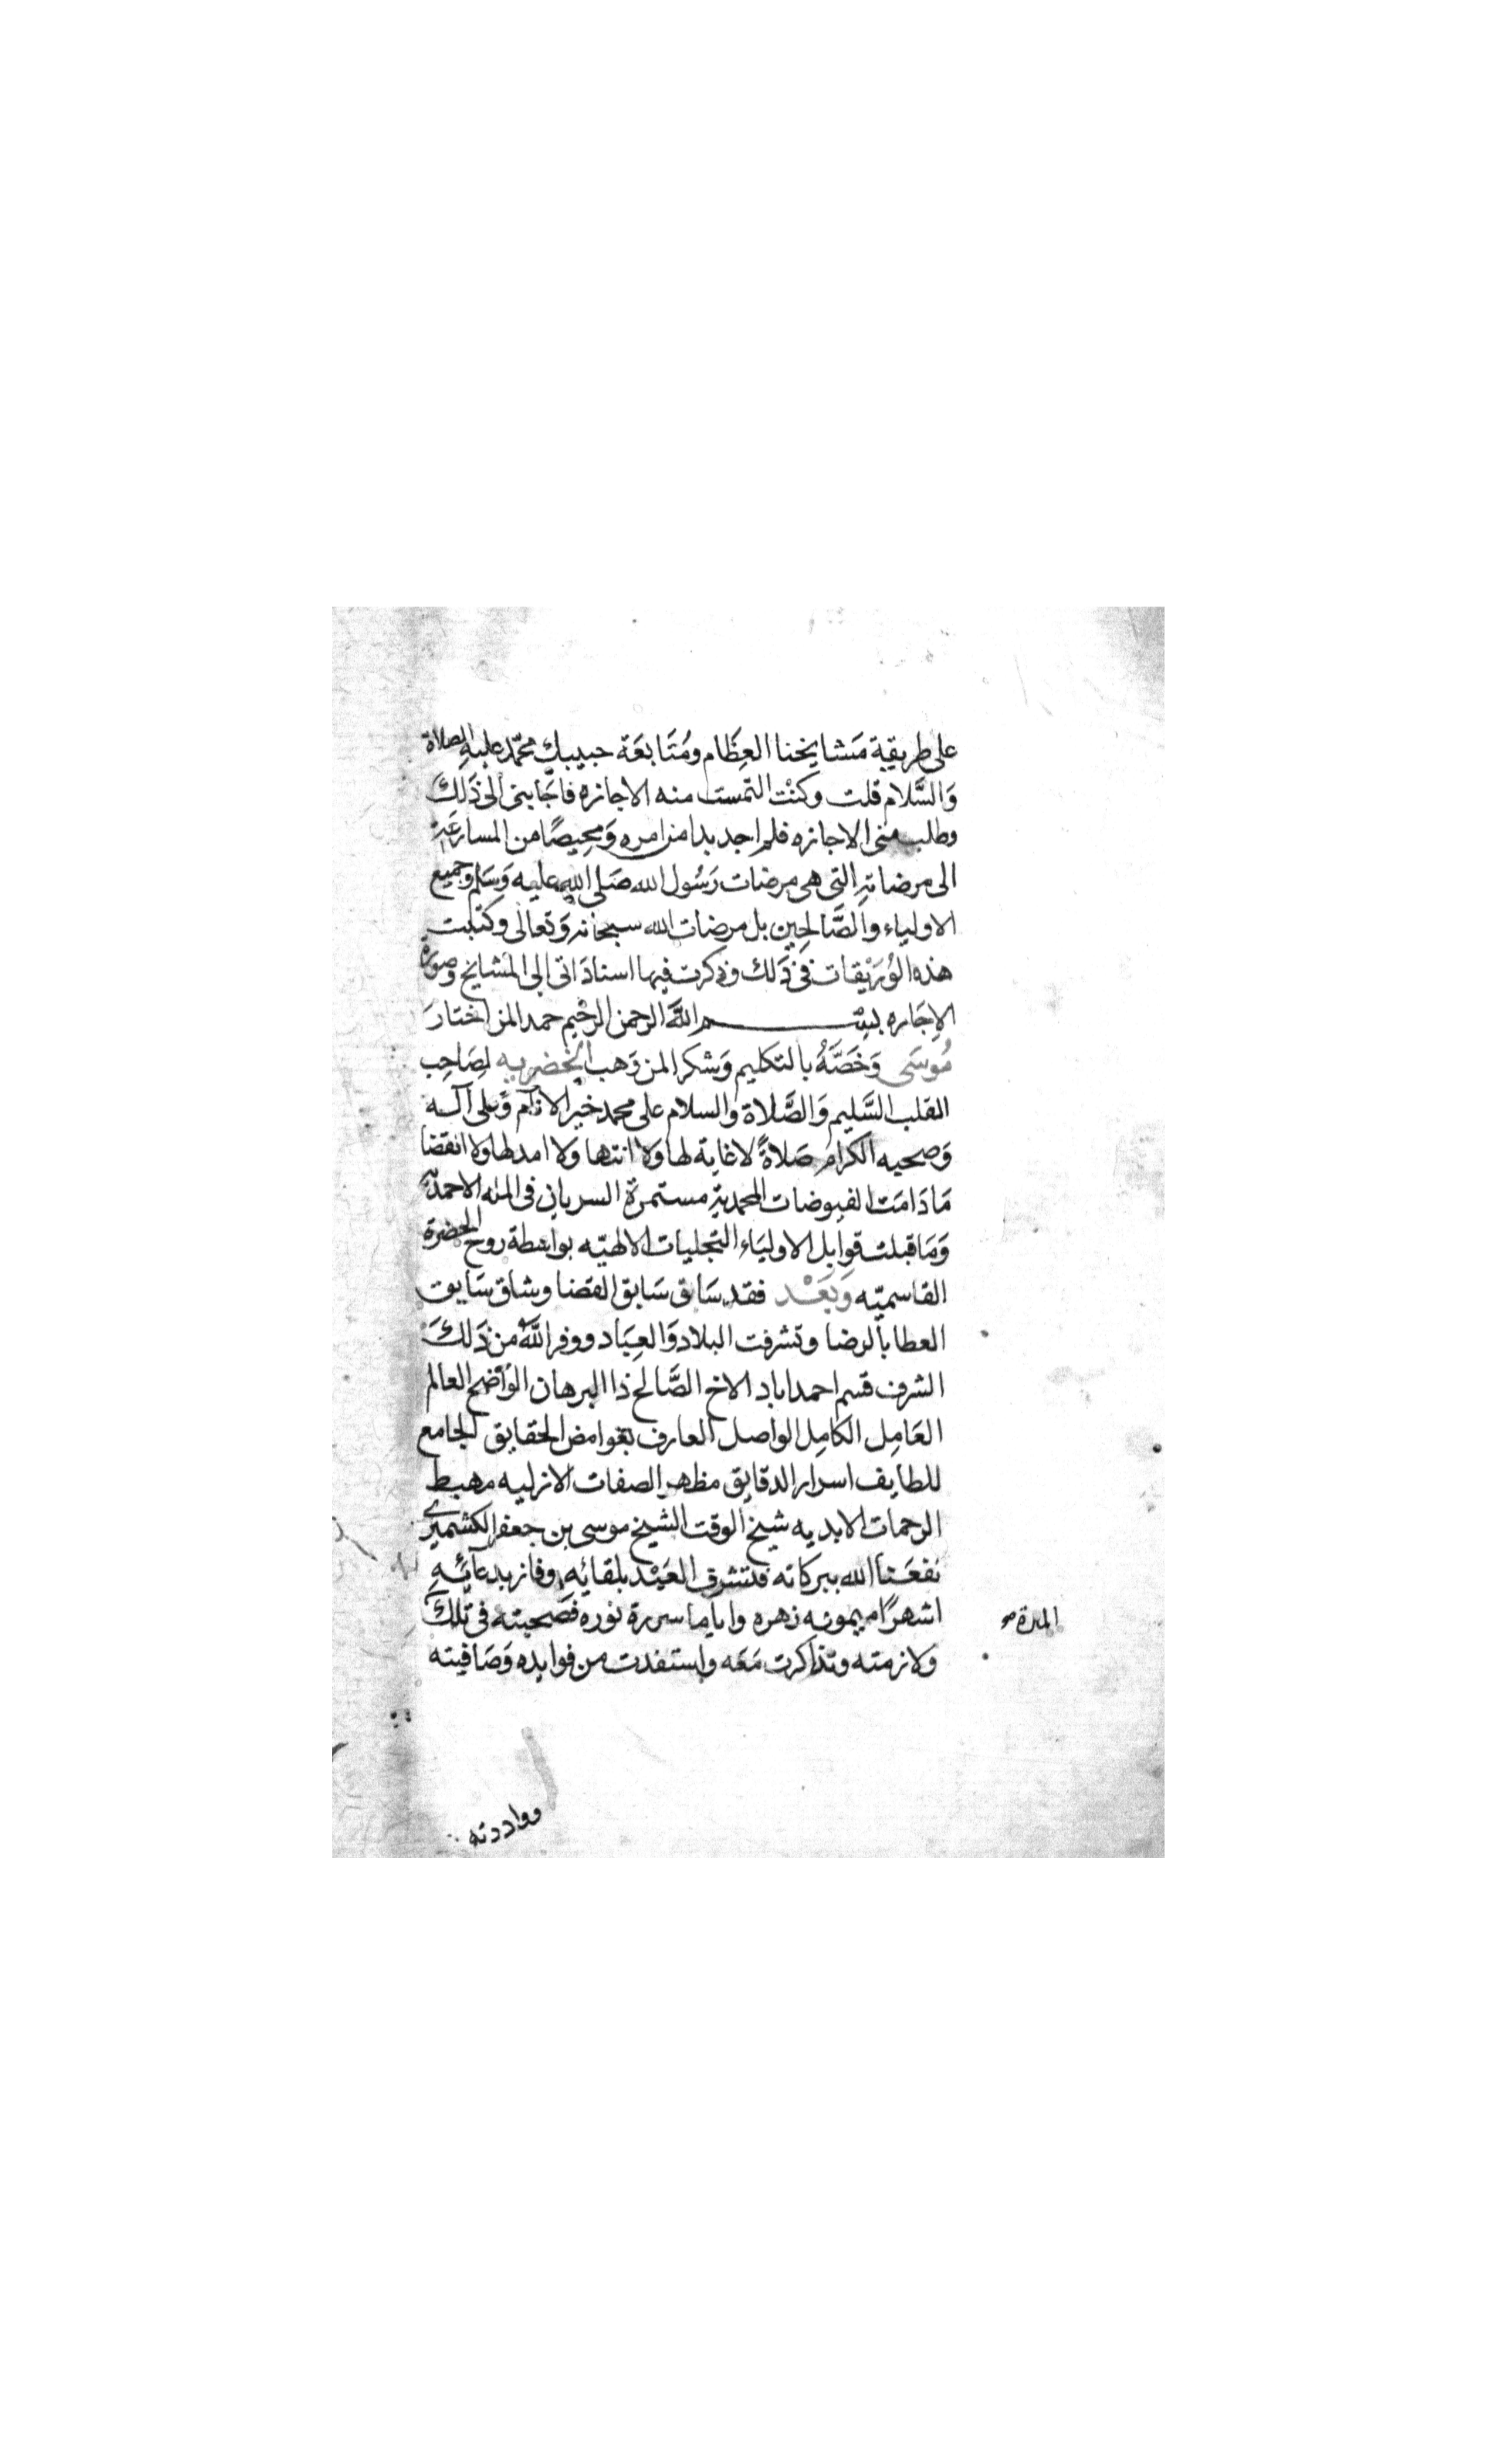 على طريقة مَشايخنا العِظَام ومُتَابعَة حبيبك محمّد عليه الصلاة
وَالسَّلام قلت وكنْت التمست منه الاجازه فاجَابنى الى ذَلِكَ
وطلب منى الاجازه فلم اجد بدا من امره وَمحِيصًا من المسارعَة
الى مرضاته التى هى مرضات رَسُول الله صَلى الله عليه وَسَلم وجميع
الاولياء والصَّالحِين بل مرضات الله سبحانه وَتعالى وكتبت
هذه الوُرَيْقات فى ذَلك وذكرت فيها اسنادَاتى الى المشايخ وصورة
الاِجَازه بِسْم اللَّه الرحمن الرحيم حمدا لمن اختارَ
مُوسَى وَخَصَّهُ بالتكليم وَشكرا لمن وَهب الخضريه لِصَاحِب
القلب السَّلِيم وَالصَّلاة والسلام على محمد خير الانَام وَعلى آله
وَصحبه الكرام صَلاةً لا غاية لها وَلا انتها وَلا امد لها ولا انقضا
مَا دَامَت الفيوضات المحمدية مستمرة السريان فى الاحمديه
وَمَا قبلت قوابل الاوليَاء التجليات الالهيّه بواسطة روح الحضرة
القاسميّه وَبَعْد فقد سَاق سَابق القضا وشاق سَايق
العطا بالرضا وتشرفت البلاد وَالعِبَاد ووفر اللَّه من ذَلكَ
الشرف قسم احمداباد الاخ الصَّالح ذا البرهان الوَاضح العالم
العَامِل الكامِل الواصل العارف بغوامض الحقايق الجامع
للطايف اسرار الدقايق مظهر الصفات الازليه مهبط
الرحمات الابديه شيخ الوقت الشيخ موسى بن جعفر الكشميرى
نفعَنا الله ببركاته فتشرف العَبْد بلقائِهِ وفاز بدعَائِهِ
اشهرًا ميمونه زهره واياما سررة نوره فصَحبته فى تلك
المدة صح
ولازمته وتذاكرت مَعَه واستفدت من فوايده وَصَافيته
وواددته